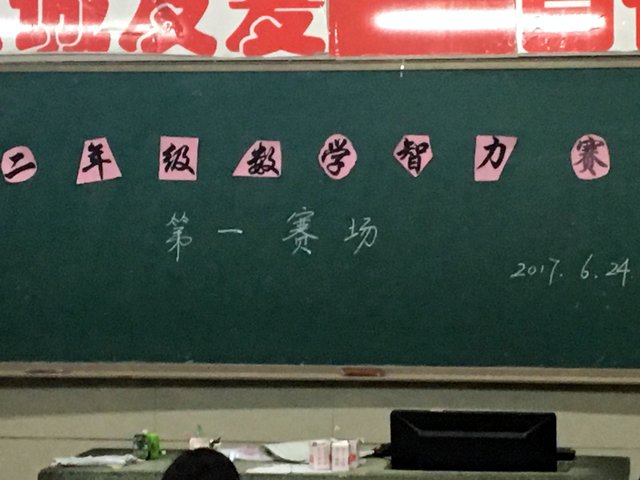 师友爱
二年级数学智力赛
第一赛场
2017.6.24